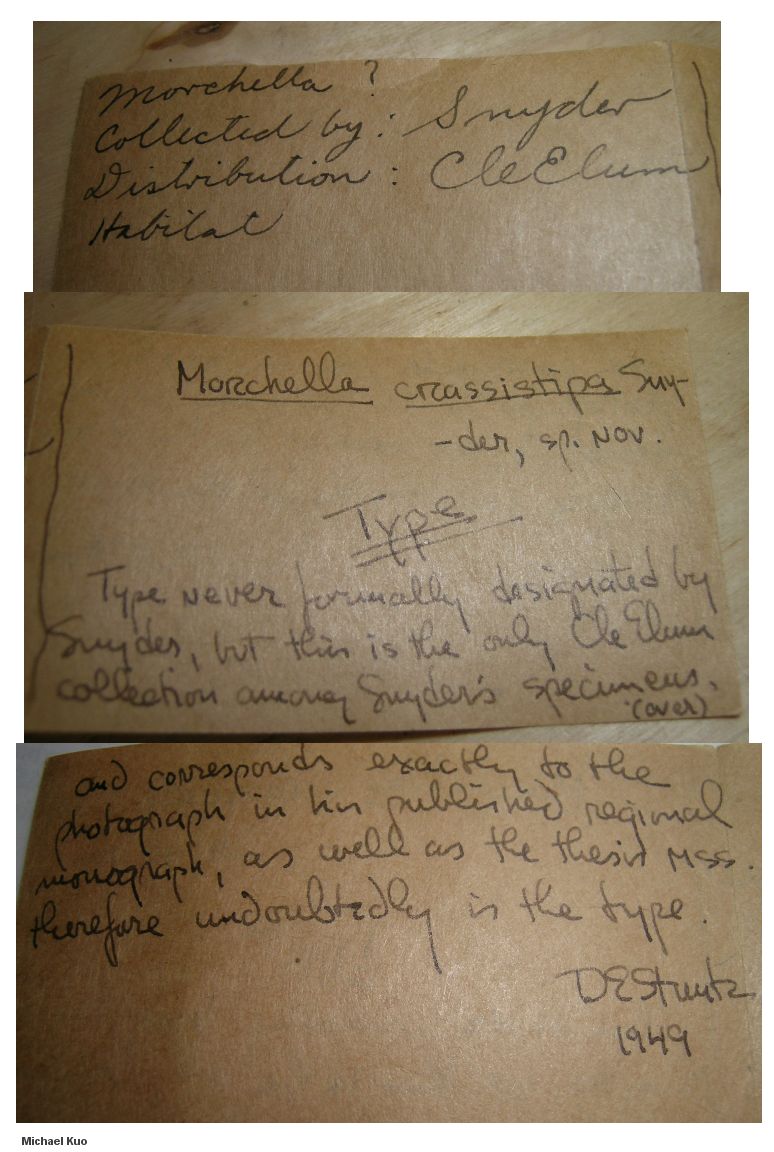 Morchella ?
Collected by: Snyder
Distribution: Cle Elum
Habitat
Morchella crassistipa Sny-
-der, sp. nov.
Type
Type never formally designated by
Snyder, but this is the only Cle Elum
collection among Snyder's specimens.
(over)
and corresponds exactly to the
photograph in his published regional
monograph, as well as the thesis mss.
therefore undoubtedly is the type.
DEStuntz
1949
Michael Kuo